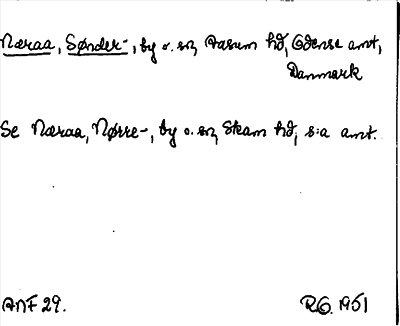 Næraa, Sønder-, by o. sn, Aasum hd, Odense amt,
Danmark
Se Næraa, Nørre-, by o. sn, Skam hd, s:a amt.
ANF 29.
R.G. 1951